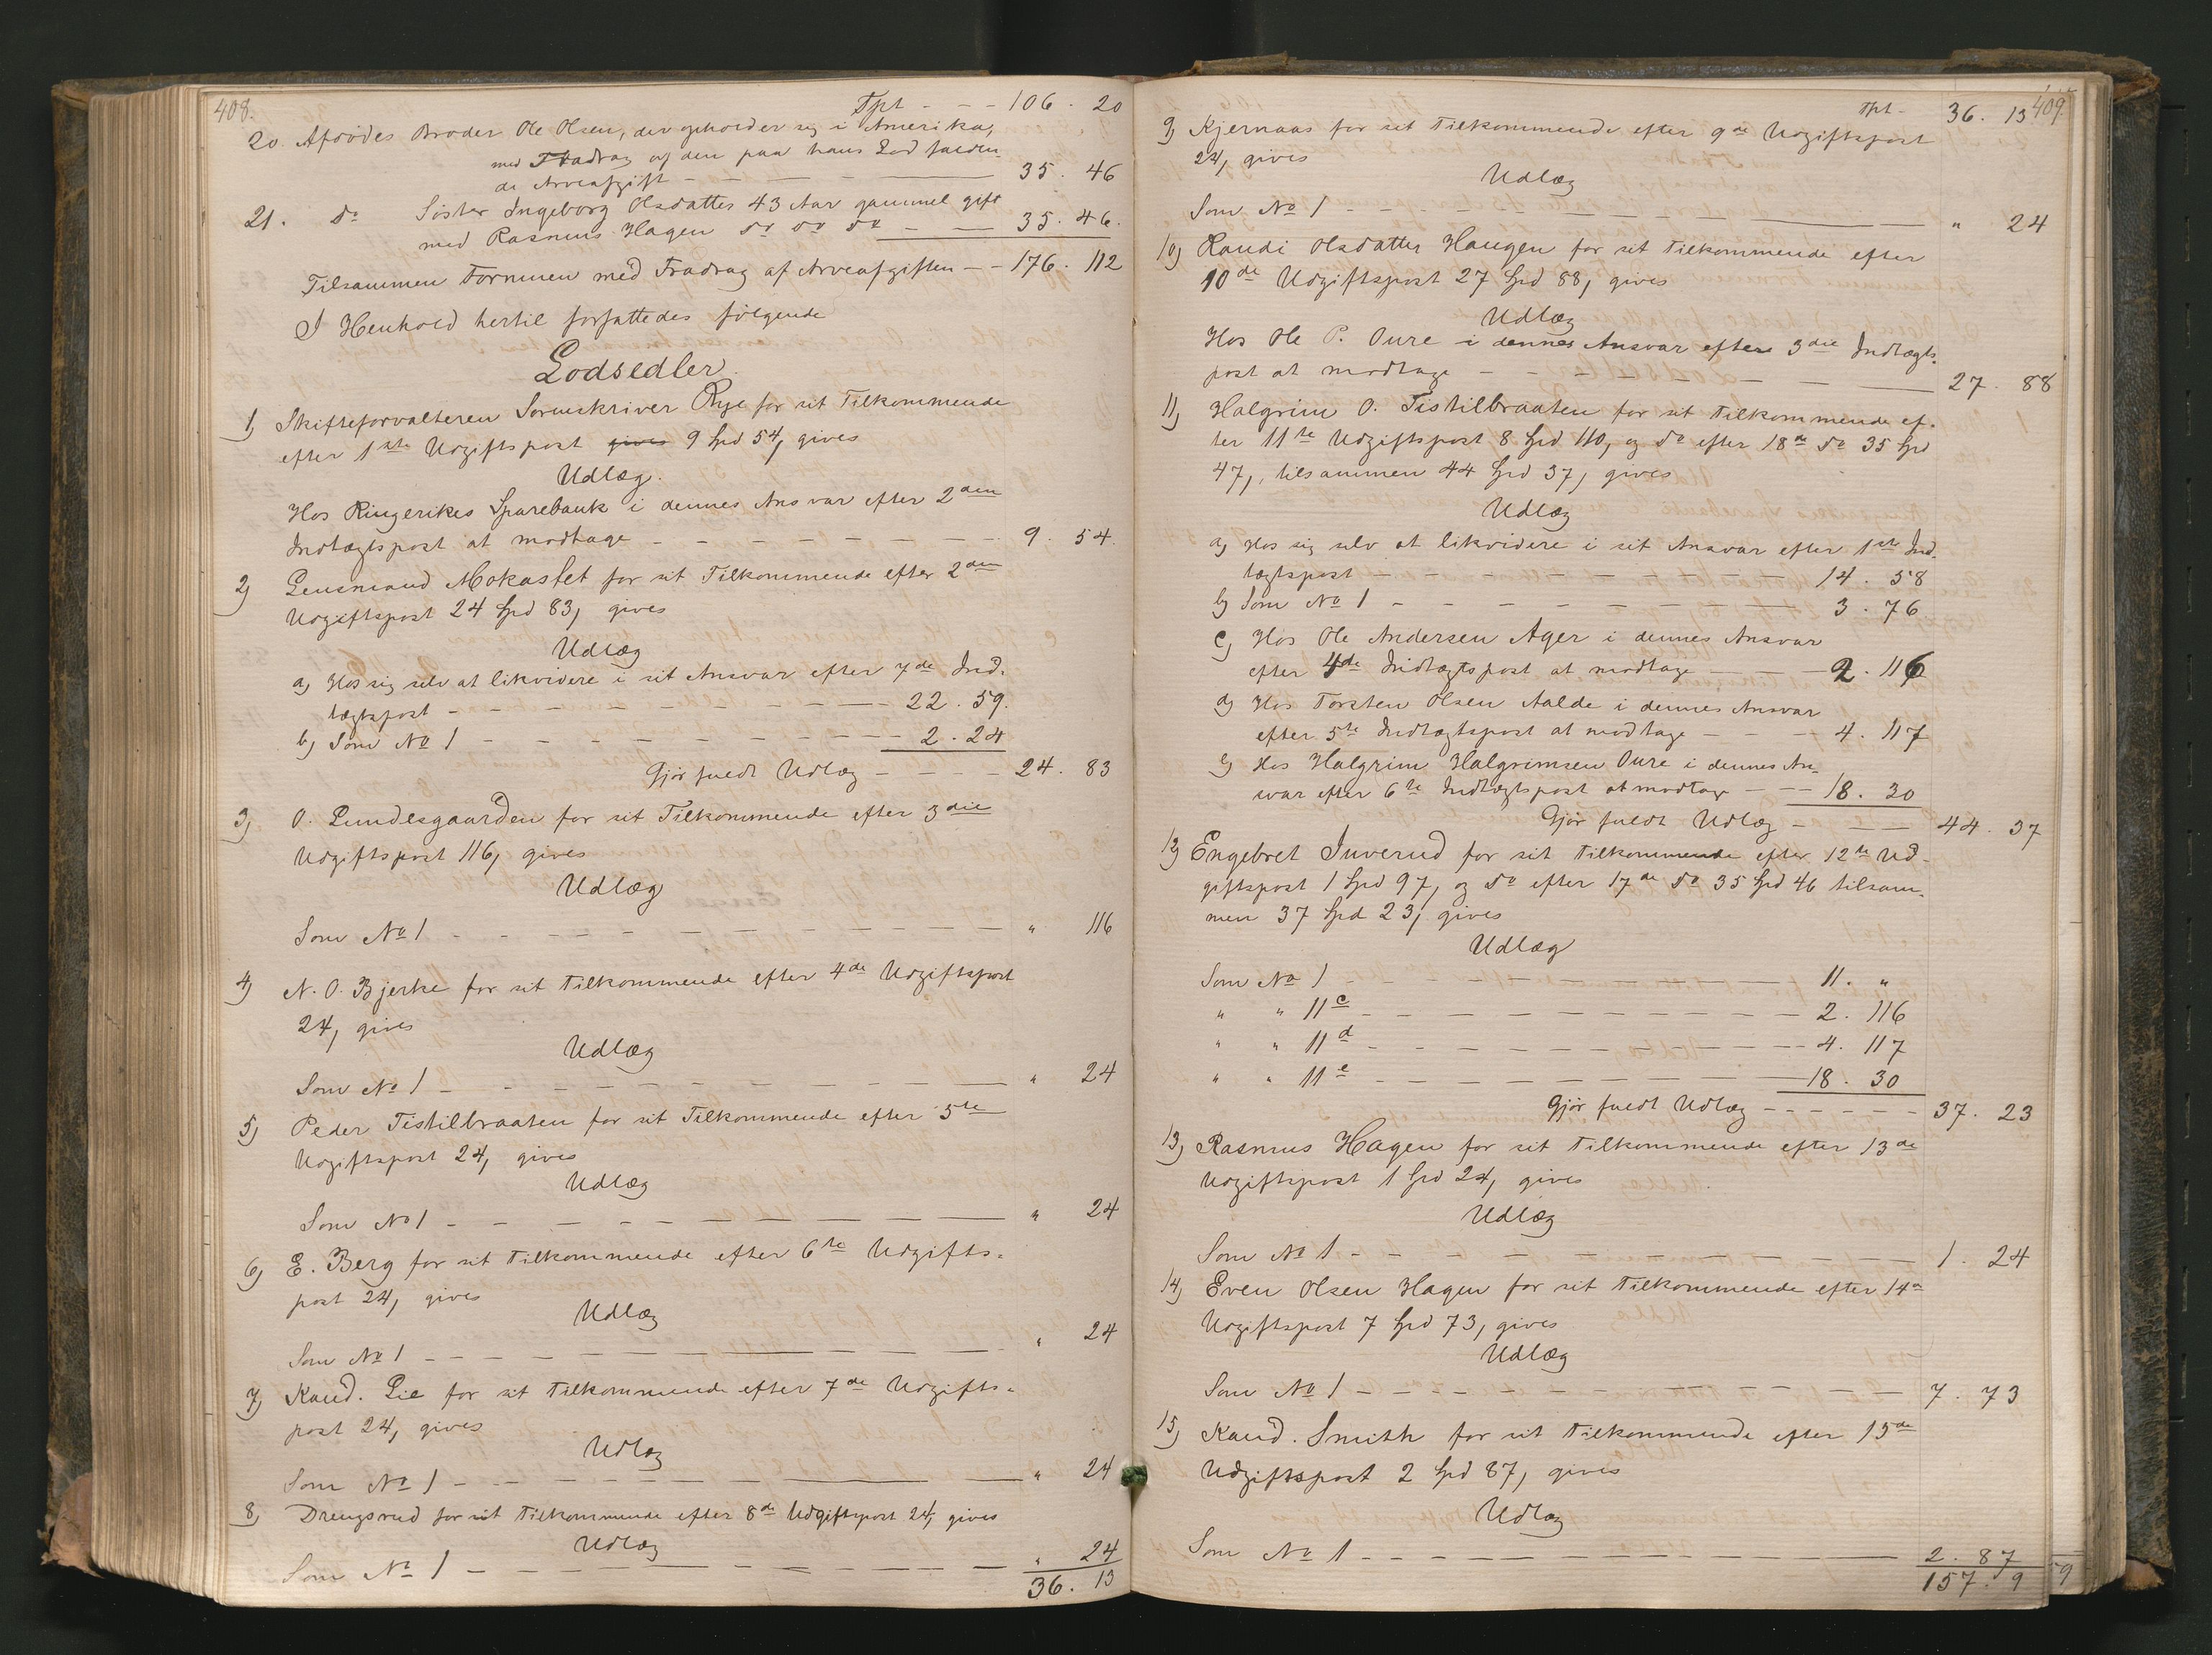 408.
Tpt - - - 106 . 20
20. Afdødes Broder Ole Olsen, der opholder sig i Amerika,
med Fradrag af den paa hans Lod falden-
de Arveafgift - — — — 35 . 46
21. do Søster Ingeborg Olsdatter 43 Aar gammel gift
med Rasmus Hagen do do do — — 35 . 46.
Tilsammen Formuen med Fradrag af Arveafgiften - - 176 . 112
I Henhold hertil forfattedes følgende
Lodsedler.
1, Skifteforvalteren Sorenskriver Rye for sit Tilkommende
efter 1ste Udgiftspost gives 9 Spd 54, gives
Udlæg.
Hos Ringerikes Sparebank i dennes Ansvar efter 2den
Indtægtspost at modtage - - - - - - - - 9 . 54.
2, Lensmand Mokastet for sit Tilkommende efter 2den
Udgiftspost 24 Spd 83, gives
Udlæg
a, Hos sig selv at likvidere i sit Ansvar efter 7de Ind-
tægtspost - - - - - - - - - 22 . 59.
b, Som No 1 - - - - - - - - - 2 . 24
Gjør fuldt Udlæg - - - - 24 . 83
3, O. Lundesgaarden for sit Tilkommende efter 3die
Udgiftspost 116, gives
Udlæg
Som No 1 - - - - - - - - - - " 116
4, N. O. Bjerke for sit Tilkommende efter 4de Udgiftspost
24, gives
Udlæg
Som No 1 - - - - - - - - - — " 24
5, Peder Tistilbraaten for sit Tilkommende efter 5te
Udgiftspost 24, gives
Udlæg
Som No 1 - - - - - - — — — " 24
6, E. Berg for sit Tilkommende efter 6te Udgifts-
post 24, gives
Udlæg
Som No 1 - - - - — — — — — " 24
7, Kand. Lie for sit Tilkommende efter 7de Udgifts-
post 24, gives
Udlæg
Som No 1 - - - - - - — — — " 24
8, Drengsrud for sit Tilkommende efter 8de Udgiftspost 24, gives
Udlæg
Som No 1 - - - - - — — — — " 24
36 . 13
409.
Tpt - 36 . 13
9, Kjernaas for sit Tilkommende efter 9de Udgiftspost
24, gives
Udlæg
Som No 1 - - - - - - - - — — " 24
10, Randi Olsdatter Haugen for sit Tilkommende efter
10de Udgiftspost 27 Spd 88, gives
Udlæg
Hos Ole P. Oure i dennes Ansvar efter 3die Indtægts-
post at modtage - - - - - - - — 27 . 88
11, Halgrim O. Tistilbraaten for sit Tilkommende ef-
ter 11te Udgiftspost 8 Spd 110, og do efter 18de do 35 Spd
47, tilsammen 44 Spd 37, gives
Udlæg
a, Hos sig selv at likvidere i sit Ansvar efter 1ste Ind-
tægtspost - - - - - - - - - 14 . 58
b, Som No 1 - - - - - - - - 3 . 76
c, Hos Ole Andersen Ager i dennes Ansvar
efter 4de Indtægtspost at modtage — — — 2 . 116
d, Hos Torsten Olsen Aalde i dennes Ansvar
efter 5te Indtægtspost at modtage - - - - 4 . 117
e, Hos Halgrim Halgrimsen Oure i dennes An-
svar efter 6te Indtægtspost at modtage - - - 18 . 30
Gjør fuldt Udlæg - - — — 44 . 37
12, Engebret Juverud for sit Tilkommende efter 12te Ud-
giftspost 1 Spd 97, og do efter 17de do 35 Spd 46 tilsam-
men 37 Spd 23, gives
Udlæg
Som No 1 - - - - - - - - - 11 . "
" " 11c - - - - - - - - - - 2 . 116
" " 11d - - - - - - - - - - 4 . 117
" " 11e - - - - - - - - - - 18 . 30
Gjør fuldt Udlæg - - - - - - 37 . 23
13, Rasmus Hagen for sit Tilkommende efter 13de
Udgiftspost 1 Spd 24, gives
Udlæg
Som No 1 - - - - - - - — — — 1 . 24
14, Even Olsen Hagen for sit Tilkommende efter 14de
Udgiftspost 7 Spd 73, gives
Udlæg
Som No 1 - - - - - - - - - — — 7 . 73
15, Kand. Smith for sit Tilkommende efter 15de
Udgiftspost 2 Spd 87, gives
Udlæg
Som No 1 - - - - - - — — — — 2 . 87
157 . 9